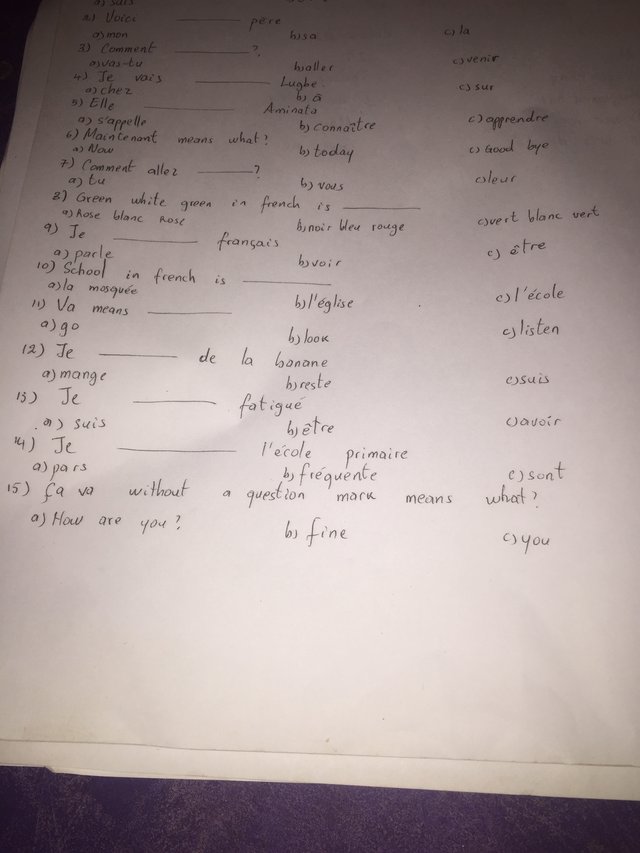 a) suis
2) Voici ________ père
a) mon b) sa c) la
3) Comment ________?
a) vas-tu b) aller c) venir
4) Je vais ________ Lugbe.
a) chez b) à c) sur
5) Elle ________ Aminata
a) s'appelle b) connaître c) apprendre
6) Maintenant means what?
a) Now b) today c) Good bye
7) Comment allez ________?
a) tu b) vous c) leur
8) Green white green in french is ________
a) Rose blanc Rose b) noir bleu rouge c) vert blanc vert
9) Je ________ français
a) parle b) voir c) être
10) School in french is ________
a) la mosquée b) l'église c) l'école
11) Va means ________
a) go b) look c) listen
12) Je ________ de la banane
a) mange b) reste c) suis
13) Je ________ fatigué
a) suis b) être c) avoir
14) Je ________ l'école primaire
a) pars b) fréquente c) sont
15) Ça va without a question mark means what?
a) How are you? b) fine c) you